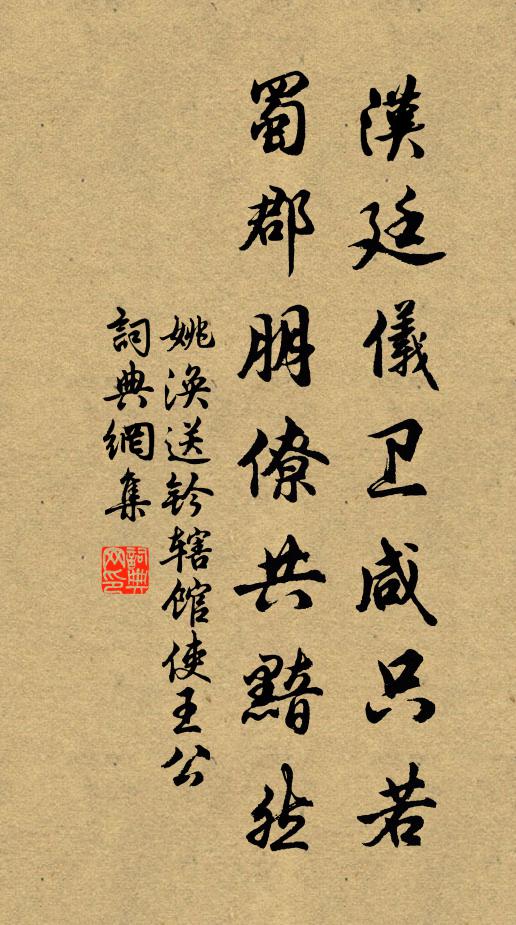 漢廷儀卫咸只若
蜀郡朋僚共黯然
姚涣送鈐辖馆使王公
詞典網集
詞典网印